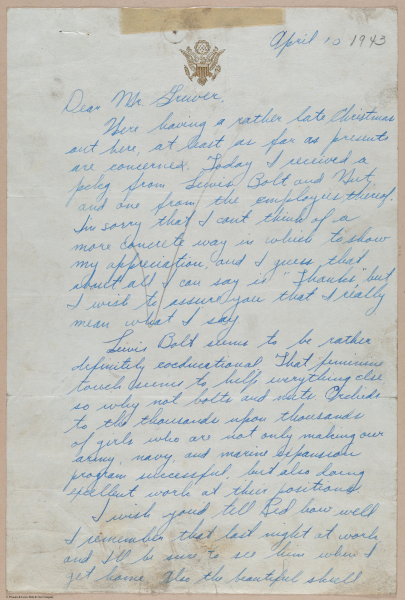 April 10 1943
Dear Mr. Gruver,
Were having a rather late Christmas
out here, at least as far as presents
are concerned. Today I received a
pckg from Lewis Bolt and Nut,
and one from the employees thereof.
I'm sorry that I cant think of a
more concrete way in which to show
my appreciation, and I guess that
about all I can say is "Thanks", but
I wish to assure you that I really
mean what I say.
Lewis Bolt seems to be rather
definitely coeducational. That feminine
touch seems to help everything else
so why not bolts and nuts. Orchids
to the thousands upon thousands
of girls who are not only making our
army, navy, and marine expansion
program successful, but also doing
excellent work at their positions.
I wish you'd tell Red how well
I remember that last night at work
and I'll be sure to see him when I
get home. Also the beautiful shell